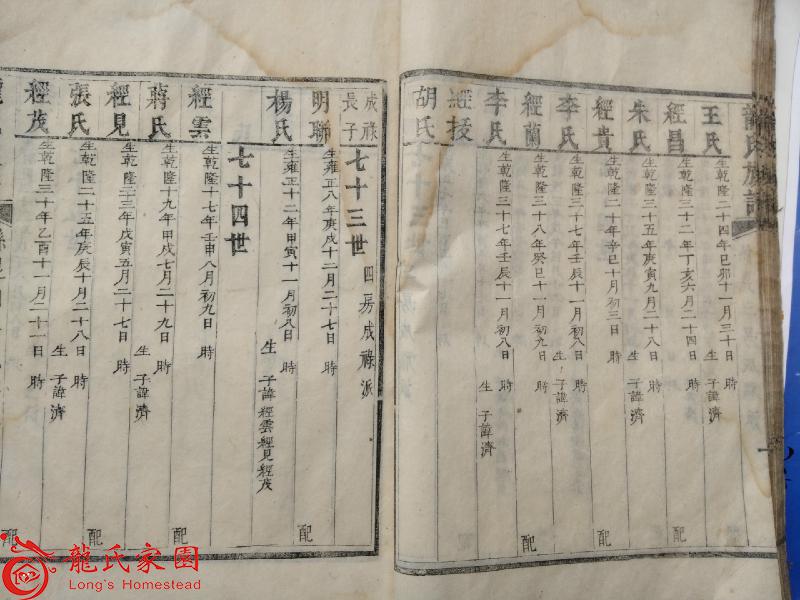 龍氏族譜
王氏 生乾隆二十四年己卯十一月三十日 時 生 子諱濟
經昌 生乾隆三十二年丁亥六月二十四日 時 配
朱氏 生乾隆三十五年庚寅九月二十八日 時 生 子諱濟
經貴 生乾隆二十年辛巳十月初三日 時 配
李氏 生乾隆三十七年壬辰十一月初八日 時 生 子諱濟
經蘭 生乾隆三十八年癸巳十一月初九日 時 配
李氏 生乾隆三十七年壬辰十一月初八日 時 生 子諱濟
經技
胡氏
七十三世 四房成祿派
成祿長子
明聯 生雍正八年庚戌十二月二十七日 時 配
楊氏 生雍正十二年甲寅十一月初八日 時 生 子諱經雲經見經茂
七十四世
經雲 生乾隆十七年壬申八月初九日 時 配
蔣氏 生乾隆十九年甲戌七月二十九日 時 生 子諱濟
經見 生乾隆二十三年戊寅五月二十七日 時 配
張氏 生乾隆二十五年庚辰十月二十八日 時 生 子諱濟
經茂 生乾隆三十年乙酉十一月二十一日 時 配
龍氏家園
Long's Homestead